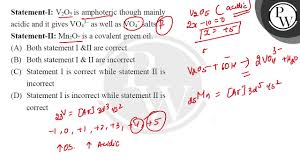 Statement-I: V₂O₅ is amphoteric though mainly
acidic and it gives VO₄³⁻ as well as VO₄⁺ salts.
Statement-II: Mn₂O₇ is a covalent green oil.
(A) Both statement I & II are correct
(B) Both statement I & II are incorrect
(C) Statement I is correct while statement II is
incorrect
(D) Statement I is incorrect while statement II is
correct
V₂O₅ (acidic)
2x-10=0
x = +5
V₂O₅ + OH → 2VO₄³⁻ + H₂O
₂₅Mn = [Ar] 3d⁵ 4s²
₂₃V = [Ar] 3d³ 4s²
-1, 0, +1, +2, +3, +4, +5
↑ OS. ↑ Acidic